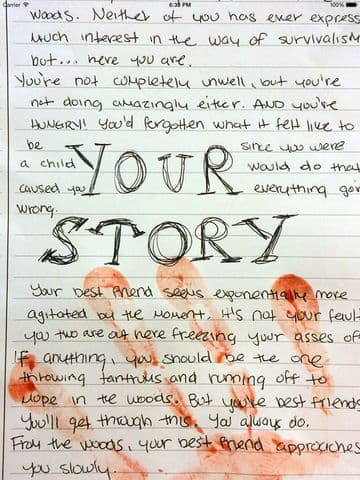 Carrier PM 100%
woods. Neither of you has ever express
much interest in the way of survivalism
but... here you are.
You're not completely unwell, but you're
not doing amazingly either. AND you're
HUNGRY! You'd forgotten what it felt like to
be since you were
a child would do that
YOUR
caused you everything goi
wrong.
STORY
Your best friend seems exponentially more
agitated by the moment. It's not your faul
you two are out here freezing your asses of
If anything, you should be the one
throwing tantrums and running off to
mope in the woods. But you're best friends
You'll get through this. You always do.
From the woods, your best friend approaches
you slowly.